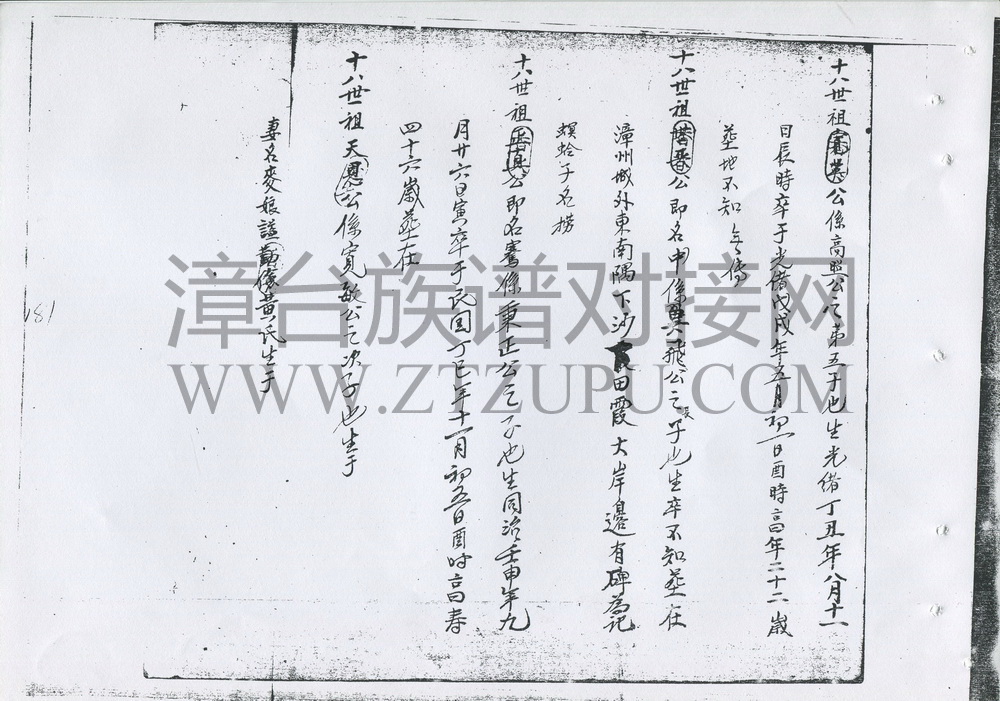 十八世祖公係高照公之第五子也生光緒丁丑年八月十一
日辰時卒于光緒戊戌年五月初一日酉時高年二十二歲
葬地不知 無傳
十八世祖公即名中係飛公之長子也生卒不知葬在
漳州城外東南隅下沙田霞大岸邊有碑為記
螟蛉子名撈
十八世祖公即名騫係秉正公之子也生同治壬申年九
月廿六日寅卒于民国丁巳年十一月初五日酉时高寿
四十六歲葬在
十八世祖天恩公係寬敏公之次子也生于
妻名麥娘謚儉黃氏生于
181
漳台族谱对接网
WWW.ZTZUPU.COM